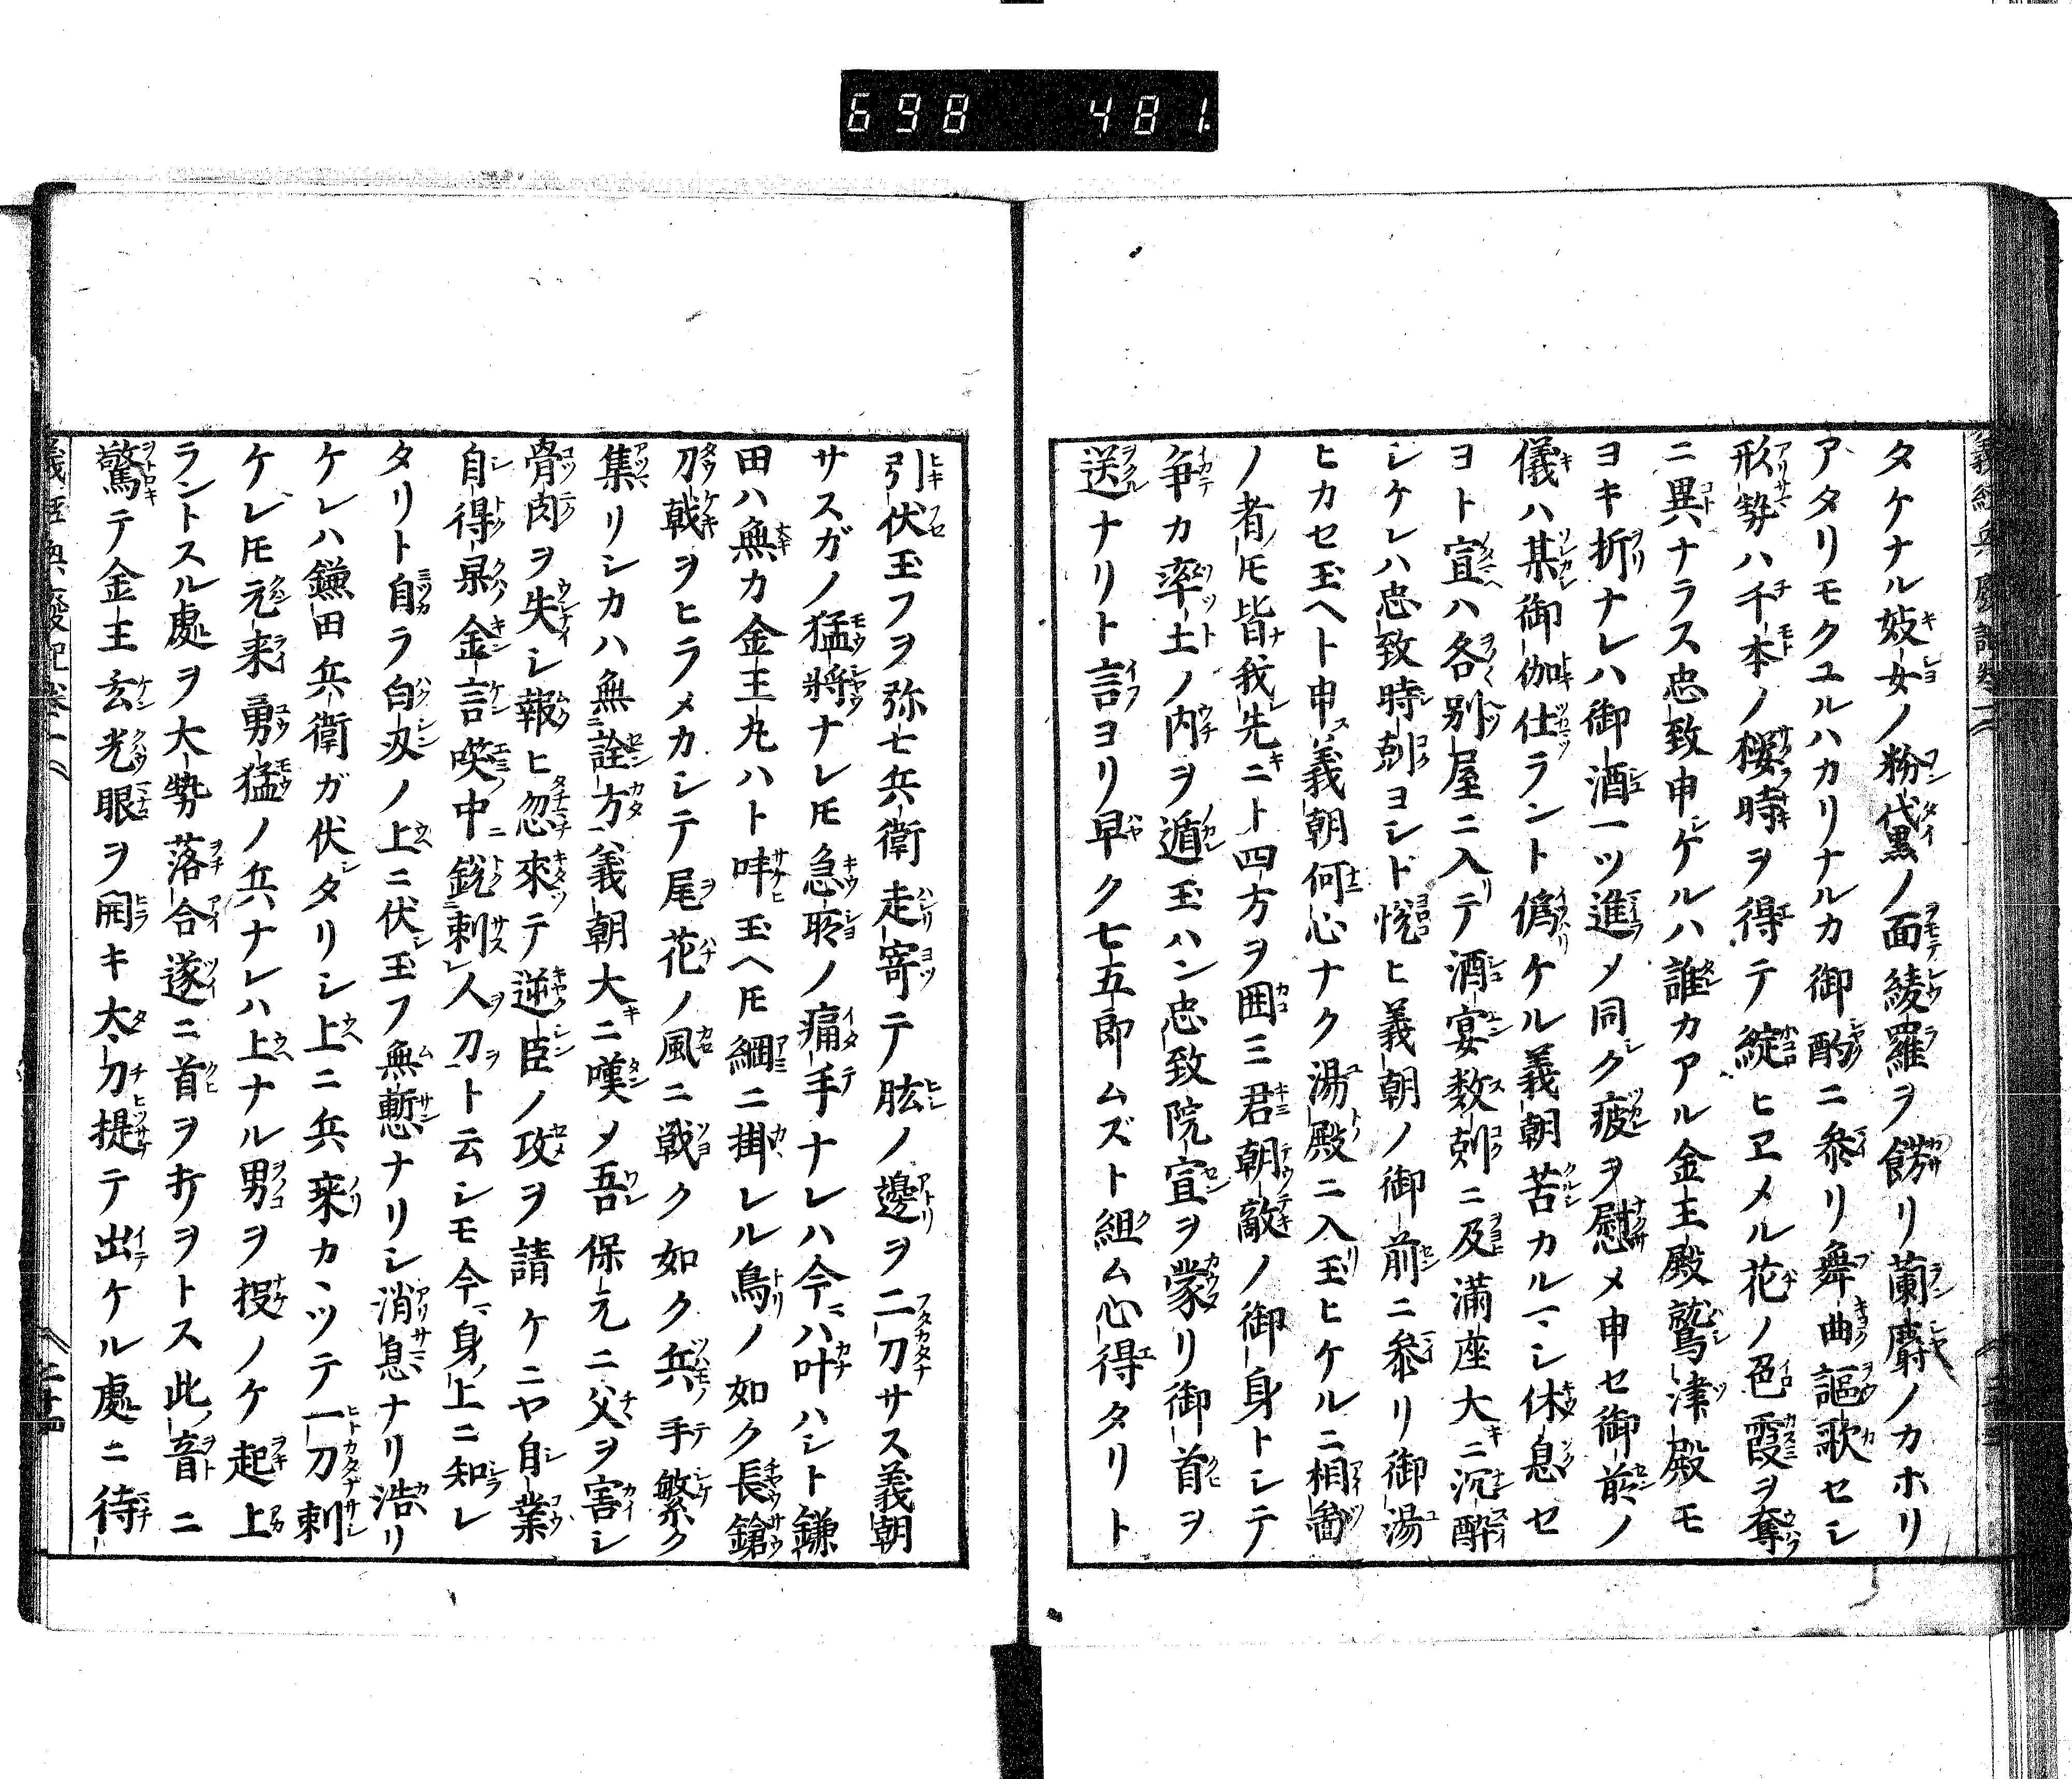 698 481.
タケナル妓女ノ粉黛ノ面綾羅ヲ餝リ蘭麝ノカホリ
アタリモクユルハカリナルカ御酌ニ参リ舞曲謳歌セシ
形勢ハ千本ノ桜時ヲ得テ綻ヒヱメル花ノ色霞ヲ奪
ニ異ナラス忠致申ケルハ誰カアル金王殿鷲津殿モ
ヨキ折ナレハ御酒一ツ進メ同ク疲ヲ慰メ申セ御前ノ
儀ハ某御伽仕ラント偽ケル義朝苦カルマシ休息セ
ヨト宣ハ各別屋ニ入テ酒宴数刻ニ及満座大ニ沉酔
シケレハ忠致時刻ヨシト悦ヒ義朝ノ御前ニ参リ御湯
ヒカセ玉ヘト申ス義朝何心ナク湯殿ニ入玉ヒケルニ相圖
ノ者ノ𪜈皆我先ニト四方ヲ囲ミ君朝敵ノ御身トシテ
争カ率土ノ内ヲ遁玉ハン忠致院宣ヲ蒙リ御首ヲ
送ナリト言ヨリ早ク七五郎ムズト組ム心得タリト
引伏玉フヲ弥七兵衛走寄テ肱ノ邊ヲ二刀サス義朝
サスガノ猛將ナレ𪜈急所ノ痛手ナレハ今ハ叶ハシト鎌
田ハ無カ金王丸ハト呼玉ヘ𪜈網ニ掛レル鳥ノ如ク長鎗
刀戟ヲヒラメカシテ尾花ノ風ニ戦ク如ク兵手繁ク
集リシカハ無詮方義朝大ニ嘆メ吾保元ニ父ヲ害シ
骨肉ヲ失シ報ヒ忽來テ逆臣ノ攻ヲ請ケニヤ自業
自得果金言咲中ニ鋭刺人刀ト云シモ今身上ニ知レ
タリト自ラ白刄ノ上ニ伏玉フ無慙ナリシ消息ナリ浩リ
ケレハ鎌田兵衛ガ伏タリシ上ニ兵乗カヽツテ一刀刺
ケレ𪜈元来勇猛ノ兵ナレハ上ナル男ヲ投ノケ起上
ラントスル處ヲ大勢落合遂ニ首ヲ打ヲトス此音ニ
驚テ金王玄光眼ヲ開キ太刀提テ出ケル處ニ待